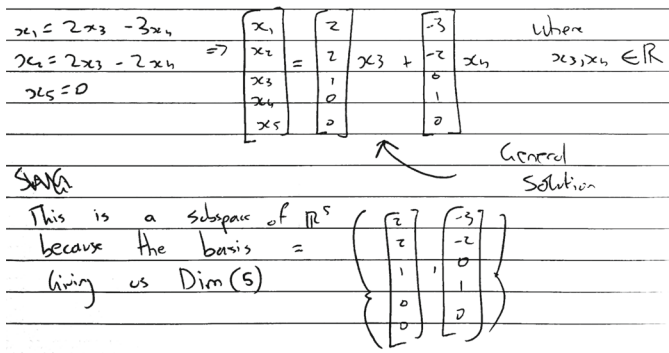 x₁ = 2x₃ - 3x₄
x₂ = 2x₃ - 2x₄
x₅ = 0
⇒ [x₁ x₂ x₃ x₄ x₅] = [2 2 1 0 0] x₃ + [-3 -2 0 1 0] x₄
where
x₃, x₄ ∈ ℝ
General
Solution
This is a subspace of ℝ⁵
because the basis = {[2 2 1 0 0], [-3 -2 0 1 0]}
Giving us Dim(5)